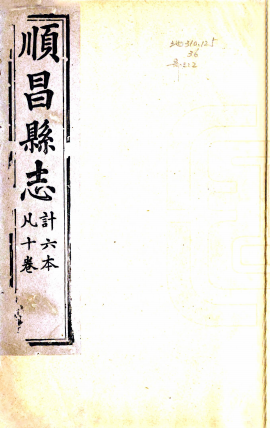 順昌縣志
計六本
凡十卷
310.125
36